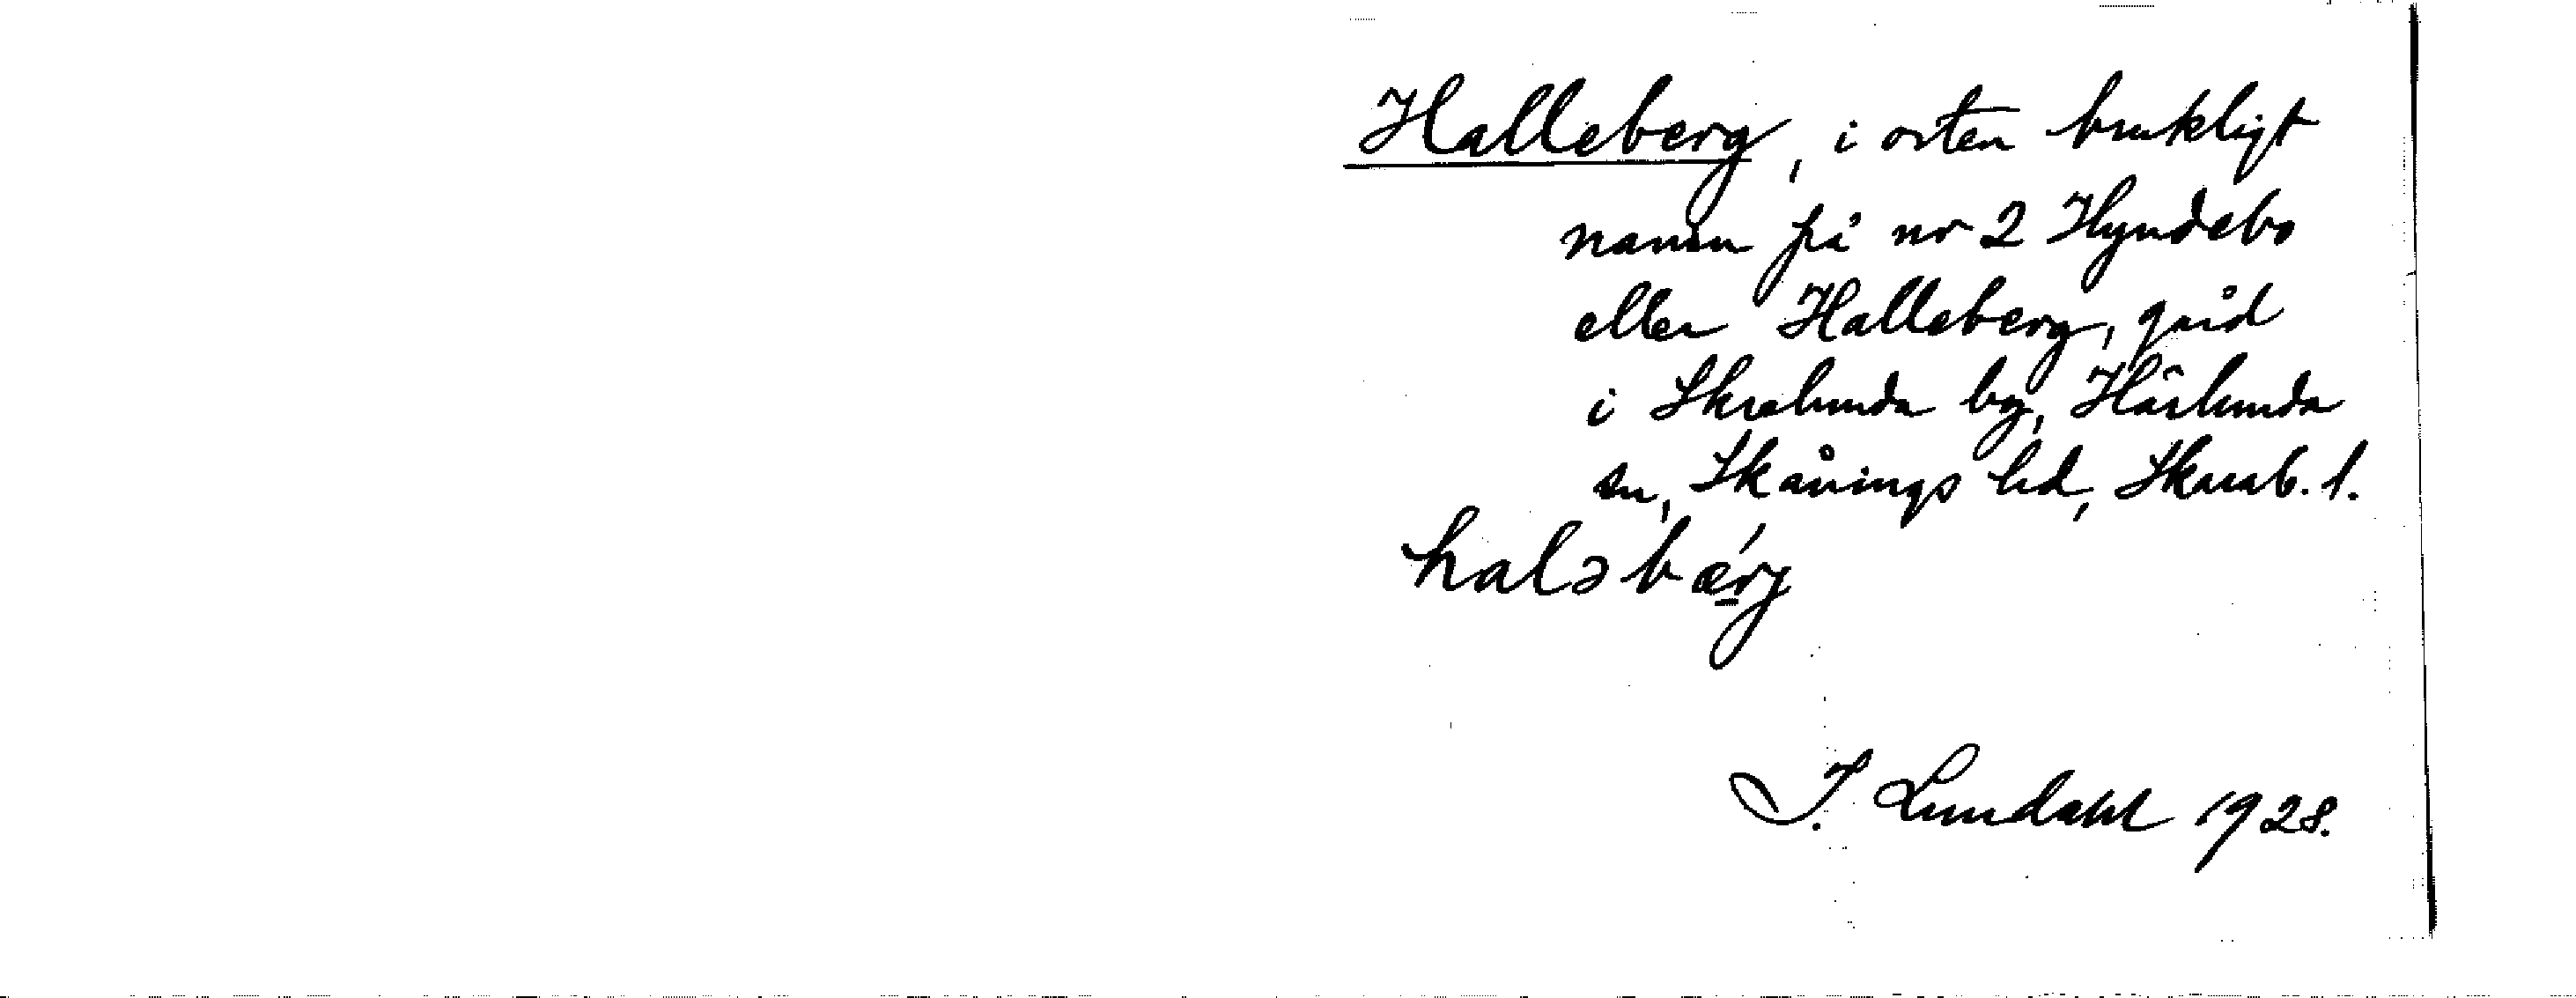 Halleberg, i orten brukligt
namn på nr 2 Hyndebo
eller Halleberg, gård
i Skralunda by, Härlunda
sn, Skånings hd, Skarab. l.
haləbærj
I. Lundahl 1928.